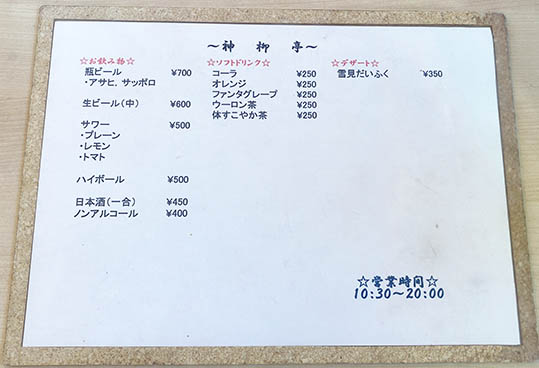 ～神 柳 亭～
☆お飲み物☆
瓶ビール ¥700
・アサヒ，サッポロ
生ビール（中） ¥600
サワー ¥500
・プレーン
・レモン
・トマト
ハイボール ¥500
日本酒（一合） ¥450
ノンアルコール ¥400
☆ソフトドリンク☆
コーラ ¥250
オレンジ ¥250
ファンタグレープ ¥250
ウーロン茶 ¥250
体すこやか茶 ¥250
☆デザート☆
雪見だいふく ¥350
☆営業時間☆
10:30～20:00